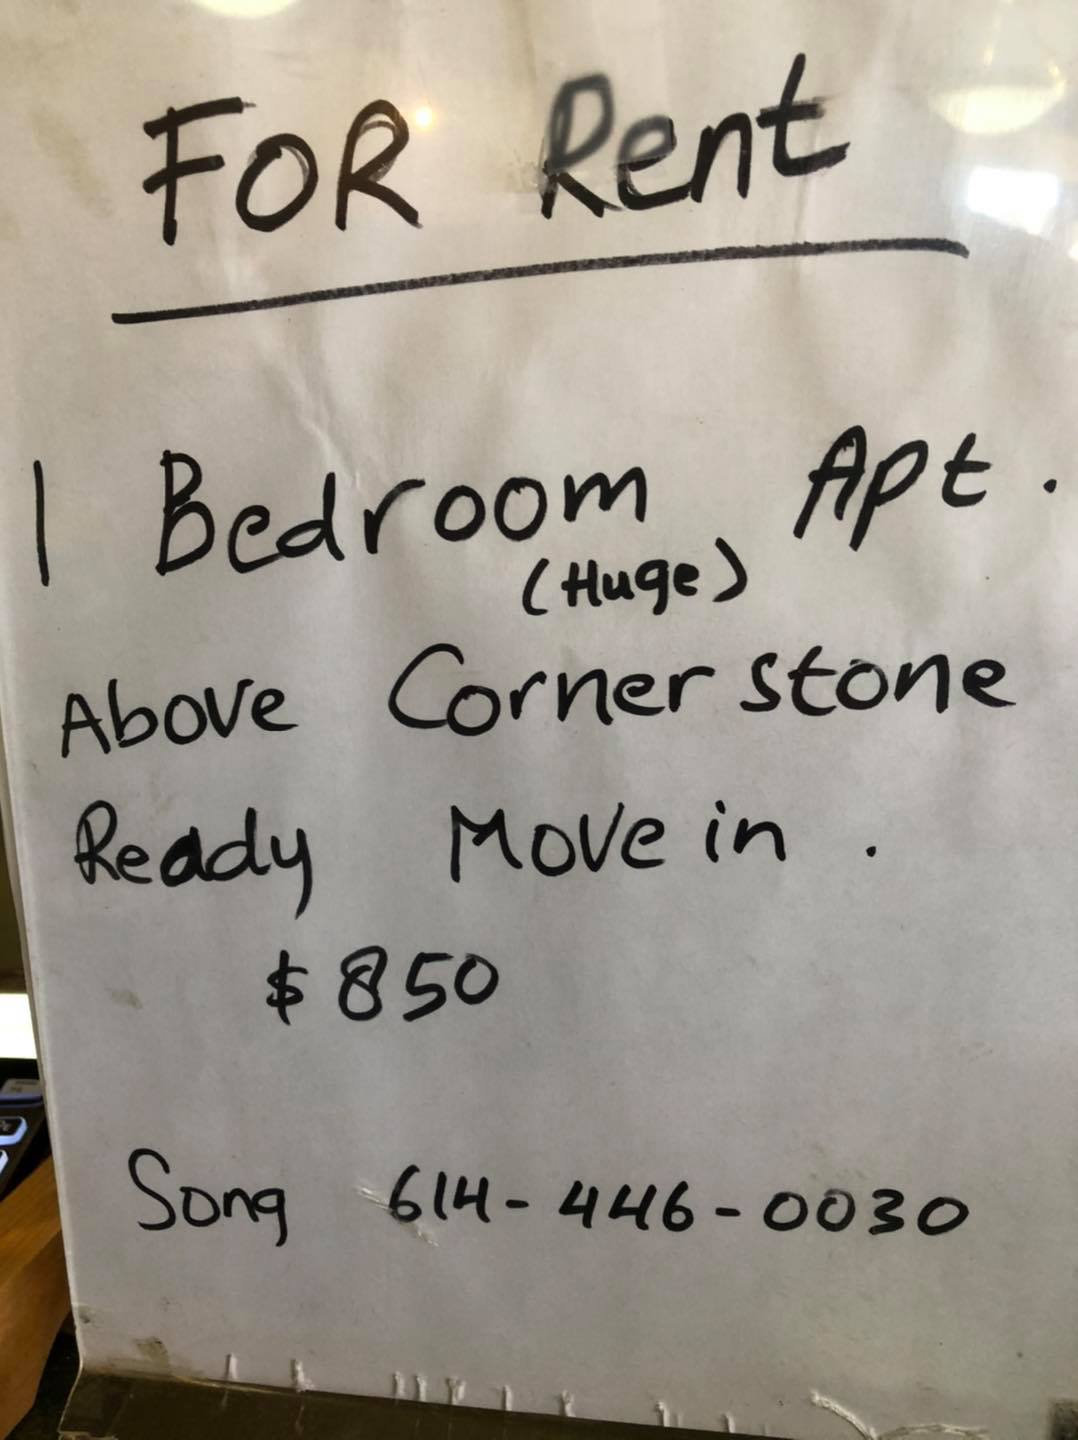 FOR Rent
1 Bedroom Apt.
(Huge)
Above Cornerstone
Ready Move in.
$850
Song 614-446-0030